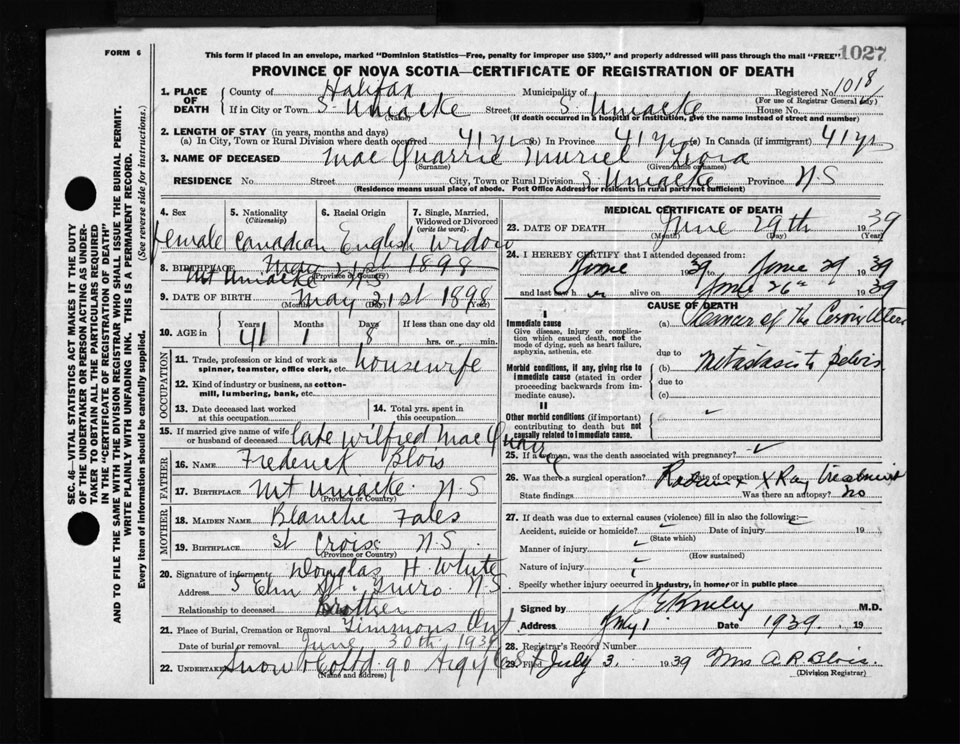 FORM 6
This form if placed in an envelope, marked "Dominion Statistics—Free, penalty for improper use $300," and properly addressed will pass through the mail "FREE"
1027
PROVINCE OF NOVA SCOTIA—CERTIFICATE OF REGISTRATION OF DEATH
SEC. 46—VITAL STATISTICS ACT MAKES IT THE DUTY
OF THE UNDERTAKER OR PERSON ACTING AS UNDER-
TAKER TO OBTAIN ALL THE PARTICULARS REQUIRED
IN THE "CERTIFICATE OF REGISTRATION OF DEATH"
AND TO FILE THE SAME WITH THE DIVISION REGISTRAR WHO SHALL ISSUE THE BURIAL PERMIT.
WRITE PLAINLY WITH UNFADING INK. THIS IS A PERMANENT RECORD.
Every item of information should be carefully supplied. (See reverse side for instructions.)
1. PLACE OF DEATH
County of Halifax Municipality of Registered No. 1018
(For use of Registrar General only)
If in City or Town S. Uniacke Street S. Uniacke House No.
(Name) (If death occurred in a hospital or institution, give the name instead of street and number)
2. LENGTH OF STAY (in years, months and days)
(a) In City, Town or Rural Division where death occurred 41 yrs (b) In Province 41 yrs (c) In Canada (if immigrant) 41 yrs
3. NAME OF DECEASED Mac Quarrie Muriel
(Surname) (Given name or names)
RESIDENCE No Street City, Town or Rural Division S. Uniacke Province N.S
(Residence means usual place of abode. Post Office Address for residents in rural parts not sufficient)
4. Sex 5. Nationality (Citizenship) 6. Racial Origin 7. Single, Married, Widowed or Divorced (write the word)
female Canadian English widow
8. BIRTHPLACE May 21st 1898
Mt Uniacke N.S
(Province or Country)
9. DATE OF BIRTH May 21st 1898
(Month) (Day) (Year)
10. AGE in Years Months Days If less than one day old
41 1 8 hrs. or min.
OCCUPATION
11. Trade, profession or kind of work as
spinner, teamster, office clerk, etc. housewife
12. Kind of industry or business, as cotton-
mill, lumbering, bank, etc.
13. Date deceased last worked
at this occupation
14. Total yrs. spent in
this occupation
15. If married give name of wife
or husband of deceased late Wilfred Mac Quarrie
FATHER
16. NAME Frederick Blois
17. BIRTHPLACE Mt Uniacke N.S
(Province or Country)
MOTHER
18. MAIDEN NAME Blanche Fales
19. BIRTHPLACE St Croix N.S.
(Province or Country)
20. Signature of informant Douglas H. White
Address 5 Elm St Truro N.S
Relationship to deceased Brother
21. Place of Burial, Cremation or Removal Timmons Ont
Date of burial or removal June 30th 1939
22. UNDERTAKER Snow & Co Ltd 90 Argyle St
(Name and address)
MEDICAL CERTIFICATE OF DEATH
23. DATE OF DEATH June 29th 1939
(Month) (Day) (Year)
24. I HEREBY CERTIFY that I attended deceased from:
June 1939 to June 29 1939
and last saw her alive on June 26th 1939
CAUSE OF DEATH
I
Immediate cause
Give disease, injury or complica-
tion which caused death, not the
mode of dying, such as heart failure,
asphyxia, asthenia, etc
(a) Cancer of the Cervix Uteri
due to
Morbid conditions, if any, giving rise to
immediate cause (stated in order
proceeding backwards from im-
mediate cause).
(b) metastasis to pelvis
due to
(c)
II
Other morbid conditions (if important)
contributing to death but not
causally related to immediate cause.
25. If a woman, was the death associated with pregnancy?
26. Was there a surgical operation? Date of operation Radium X Ray treatment
State findings Was there an autopsy? no
27. If death was due to external causes (violence) fill in also the following:
Accident, suicide or homicide? Date of injury 19
(State which)
Manner of injury
(How sustained)
Nature of injury
Specify whether injury occurred in industry, in home, or in public place
Signed by M.D.
Address Date July 1. 1939. 19
28. Registrar's Record Number
29. Filed July 3. 1939 Mrs A R Blois.
(Division Registrar)